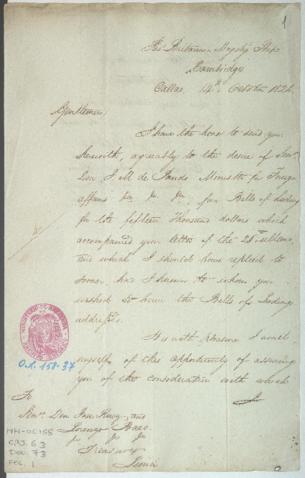 1
His Britannic Majesty's Ship
Cambridge
Callao, 14th October 1826
Gentlemen,
I have the honor to send you
herewith, agreeably to the desire of
Don J. M. de Pando Minister for Foreign
affairs &c &c &c, four Bills of Lading
for the fifteen thousand dollars which
accompanied your letter of the 28th ultimo,
and which I should have replied to
sooner, had I known to whom you
wished to have the Bills of Lading
addressed.
It is with pleasure I avail
myself of this opportunity of assuring
you of the consideration with which
I
O.L. 158-37
To
Don Juan and
Lorenzo
&c &c &c
Treasury
Lima
MH-OL158
CAJ. 63
DOC. 73
FOL. 1